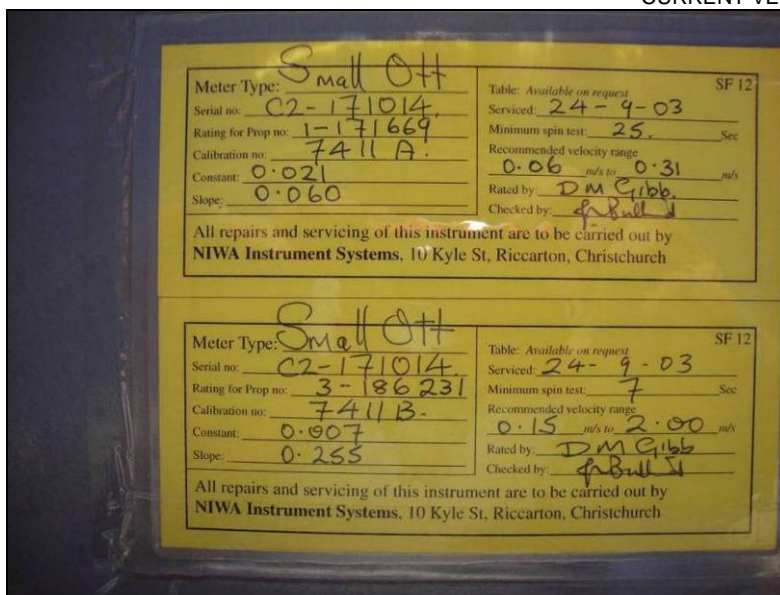 CURRENT VE
Meter Type: Small Ott
Serial no: C2-171014.
Rating for Prop no: 1-171669
Calibration no: 7411 A.
Constant: 0.021
Slope: 0.060
Table: Available on request SF 12
Serviced: 24-9-03
Minimum spin test: 25. Sec
Recommended velocity range
0.06 m/s to 0.31 m/s
Rated by: D M Gibb.
Checked by:
All repairs and servicing of this instrument are to be carried out by
NIWA Instrument Systems, 10 Kyle St, Riccarton, Christchurch
Meter Type: Small Ott
Serial no: C2-171014.
Rating for Prop no: 3-186231
Calibration no: 7411B-
Constant: 0.007
Slope: 0.255
Table: Available on request SF 12
Serviced: 24-9-03
Minimum spin test: 7 Sec
Recommended velocity range
0.15 m/s to 2.00 m/s
Rated by: D M Gibb
Checked by:
All repairs and servicing of this instrument are to be carried out by
NIWA Instrument Systems, 10 Kyle St, Riccarton, Christchurch